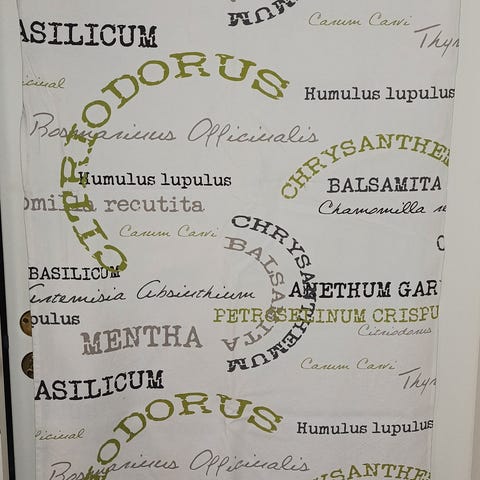 MUM
Carum Carvi
ASILICUM
Thyr
icinal
CITRIODORUS
Humulus lupulus
Rosmarinus Officinalis
CHRYSANTHEM
Humulus lupulus
BALSAMITA
omilla recutita
Chamomilla re
Carum Carvi
CHRYSANTHEMUM
BALSAMITA
BASILICUM
Artemisia Absinthium
ANETHUM GAR
pulus
PETROSELINUM CRISPU
Citriodorus
MENTHA
Carum Carvi
ASILICUM
Thyr
icinal
ODORUS
Humulus lupulus
Rosmarinus Officinalis
YSANTHE